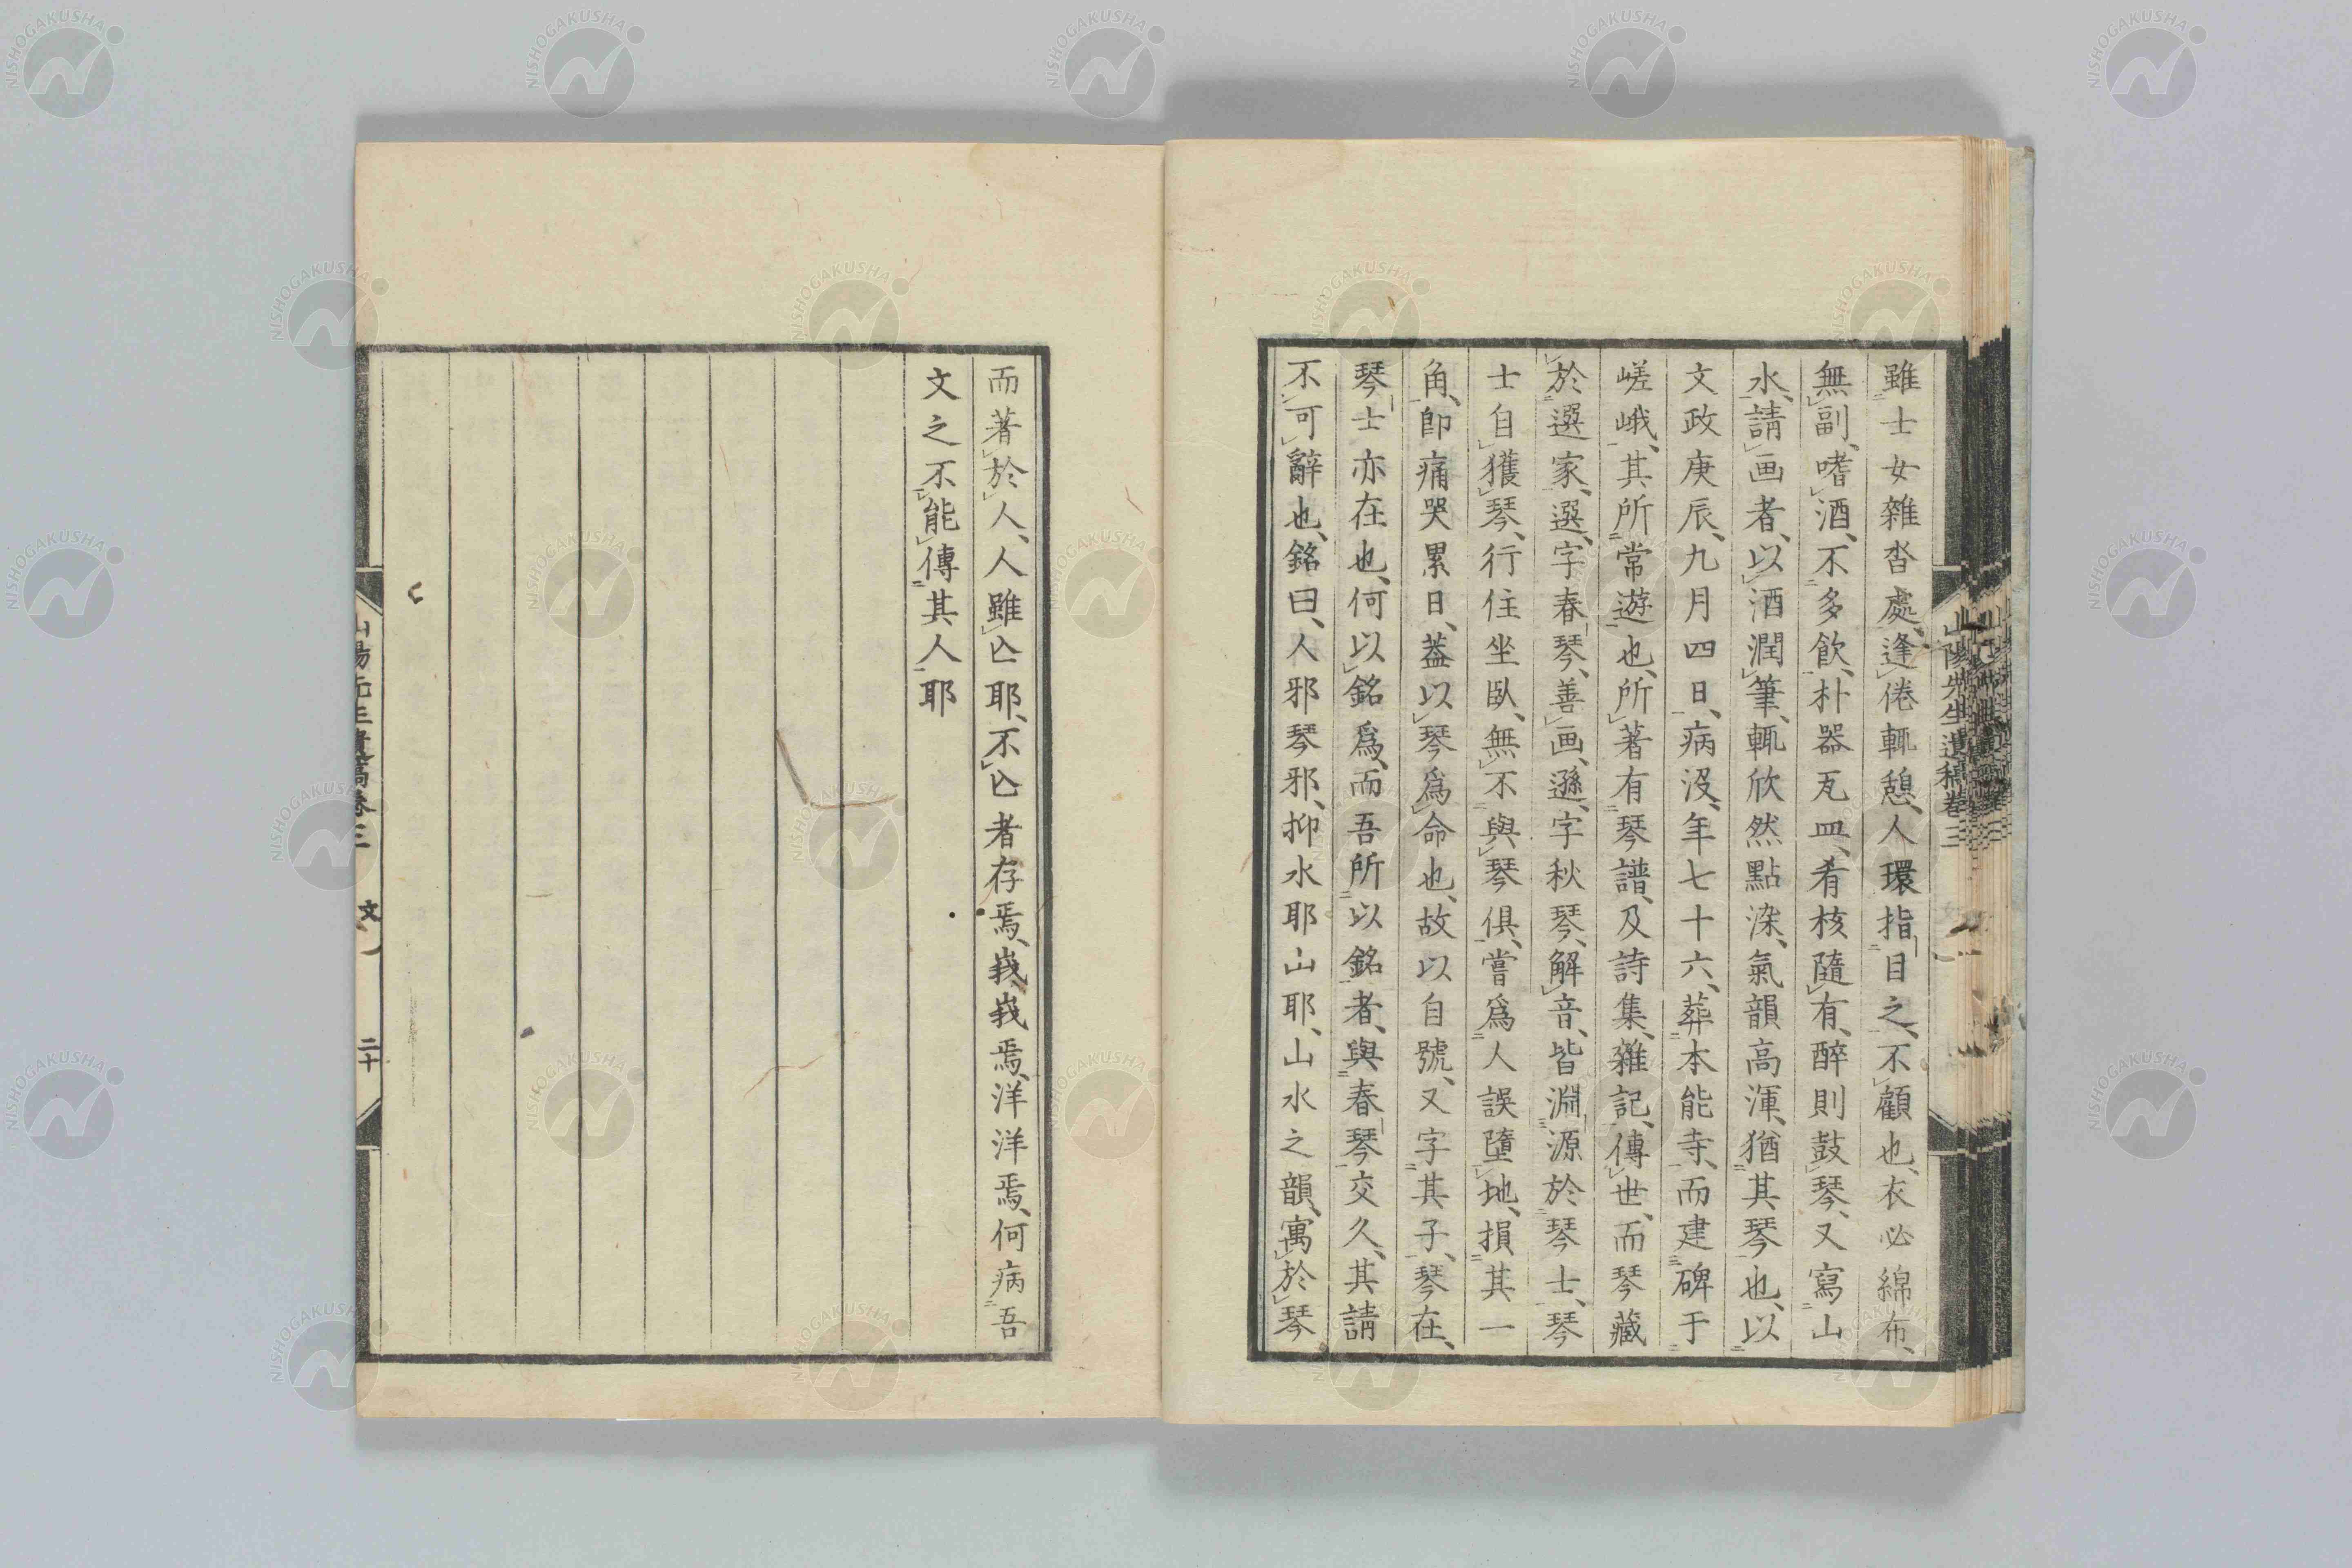 雖士女雜沓處、逢倦輒憩、人環指目之、不顧也、衣必綿布、
無副、嗜酒、不多飲、朴器瓦皿、肴核隨有、醉則鼓琴、又寫山
水、請画者、以酒潤筆、輒欣然點染、氣韻高渾、猶其琴也、以
文政庚辰、九月四日、病沒、年七十六、葬本能寺、而建碑于
嵯峨、其所常遊也、所著有琴譜、及詩集、雜記、傳世、而琴藏
於選家、選、字春琴、善画、遜、字秋琴、解音、皆淵源於琴士、琴
士自獲琴、行住坐臥、無不與琴俱、嘗爲人誤墮地、損其一
角、卽痛哭累日、葢以琴爲命也、故以自號、又字其子、琴在、
琴士亦在也、何以銘爲、而吾所以銘者、與春琴交久、其請
不可辭也、銘曰、人邪琴邪、抑水耶山耶、山水之韻、寓於琴
而著於人、人雖亾耶、不亾者存焉、峩峩焉、洋洋焉、何病吾
文之不能傳其人耶
山陽先生遺稿卷三
文
二十
NISHOGAKUSHA